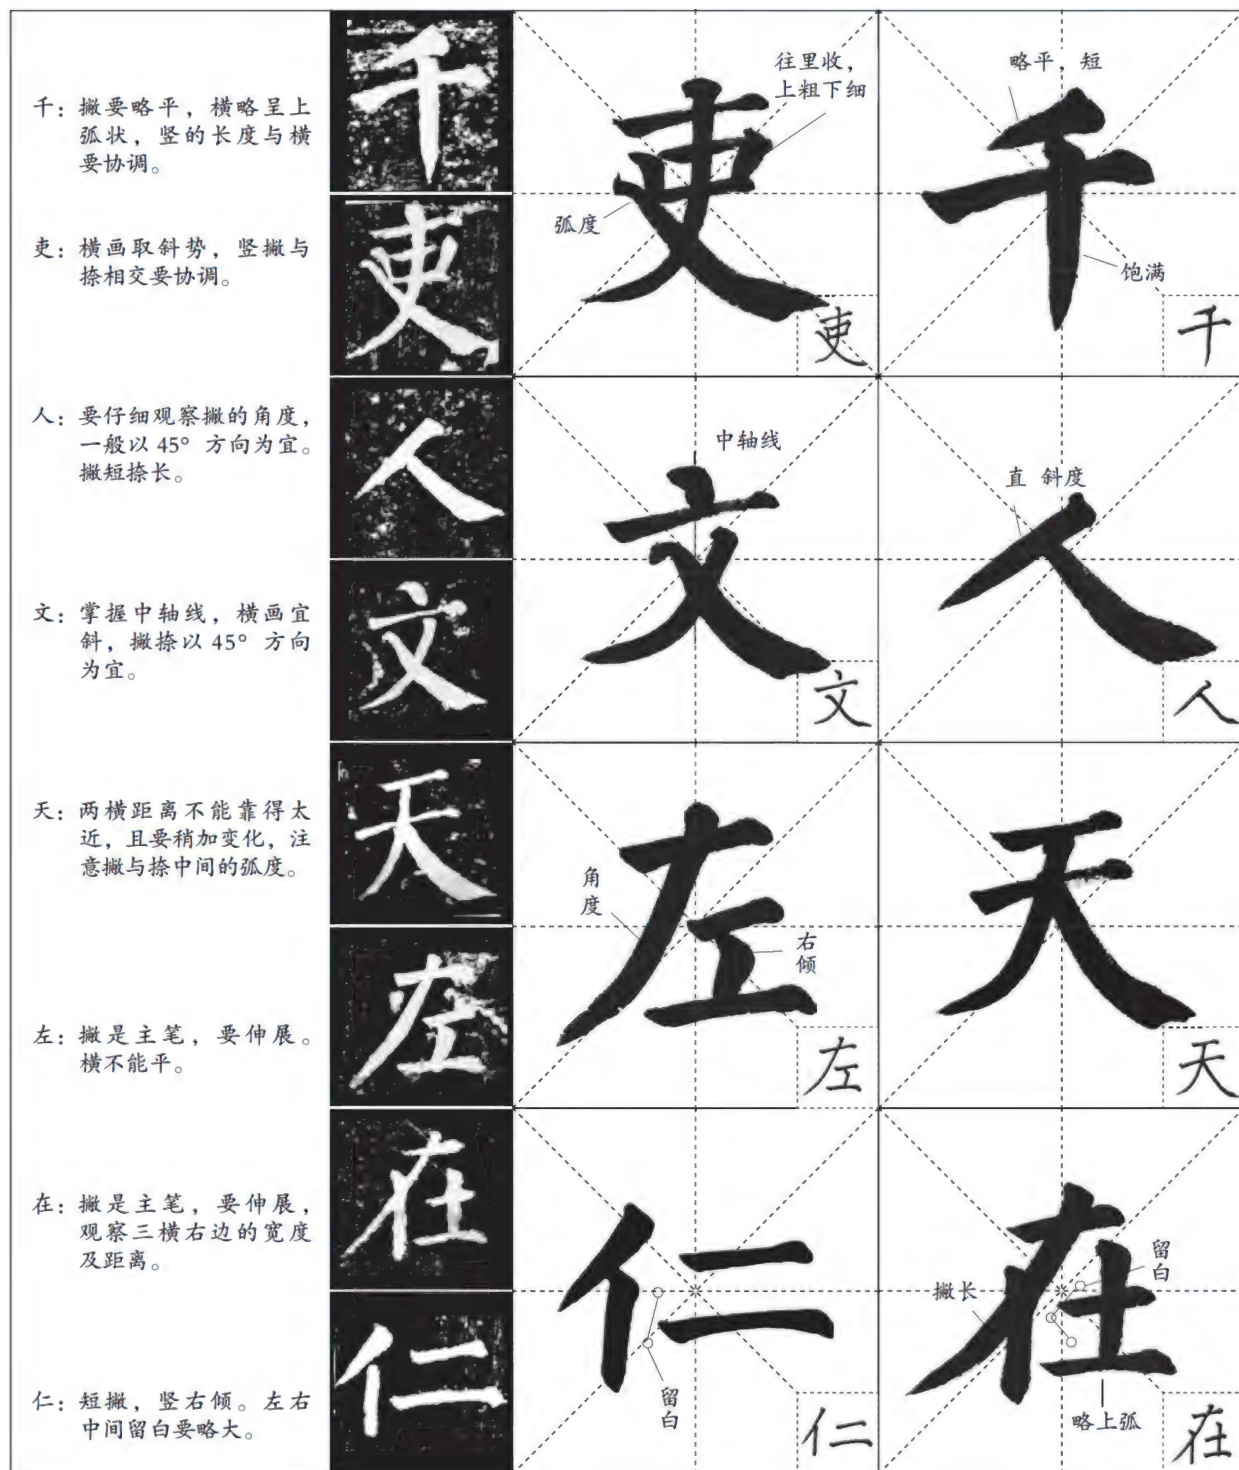 千：撇要略平，横略呈上
弧状，竖的长度与横
要协调。
吏：横画取斜势，竖撇与
捺相交要协调。
人：要仔细观察撇的角度，
一般以45°方向为宜。
撇短捺长。
文：掌握中轴线，横画宜
斜，撇捺以45°方向
为宜。
天：两横距离不能靠得太
近，且要稍加变化，注
意撇与捺中间的弧度。
左：撇是主笔，要伸展。
横不能平。
在：撇是主笔，要伸展，
观察三横右边的宽度
及距离。
仁：短撇，竖右倾。左右
中间留白要略大。
千
吏
人
文
天
左
在
仁
吏
往里收，
上粗下细
弧度
吏
千
略平，短
饱满
千
文
中轴线
文
人
直 斜度
人
左
角度
右倾
左
天
天
仁
留白
仁
在
留白
撇长
略上弧
在